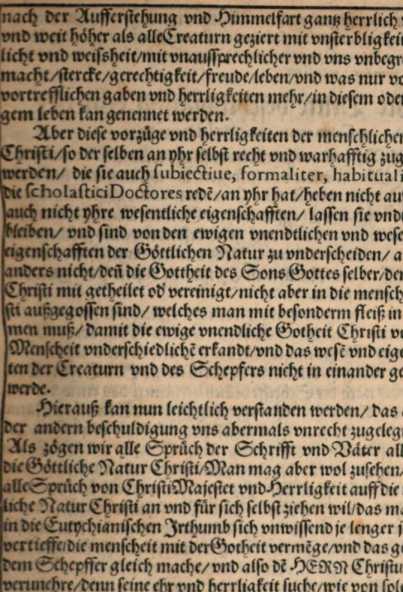 nach der Aufferstehung vnd Himmelfart gantz herrlich
vnd weit höher als alle Creaturn geziert mit vnsterbligkei
licht vnd weissheit/mit vnaussprechlicher vnd vns vnbegr
macht/stercke/gerechtigkeit/freude/leben/vnd was nur vo
vortrefflichen gaben vnd herrligkeiten mehr/in diesem oder
gem leben kan genennet werden.
Aber diese vorzüge vnd herrligkeiten der menschlichen
Christi/so der selben an yhr selbst recht vnd warhafftig zug
werden/ die sie auch subiectiue, formaliter, habituali
die scholastici Doctores redẽ/an yhr hat/heben nicht au
auch nicht yhre wesentliche eigenschafften/ lassen sie vnd
bleiben/ vnd sind von den ewigen vnendtlichen vnd wese
eigenschafften der Göttlichen Natur zu vnderscheiden/ a
anders nicht/deñ die Gottheit des Sons Gottes selber/der
Christi mit getheilet oď vereinigt/nicht aber in die mensch
sti außgegossen sind/ welches man mit besonderm fleiß in
men muß/ damit die ewige vnendliche Gotheit Christi vn
Menscheit vnderschiedlichẽ erkandt/vnd das wesẽ vnd eige
ten der Creaturn vnd des Schepfers nicht in einander ge
werde.
Hierauß kan nun leichtlich verstanden werden/ das
der andern beschuldigung vns abermals vnrecht zugeleg
Als zögen wir alle Sprüch der Schrifft vnd Väter all
die Göttliche Natur Christi/Man mag aber wol zusehen/
alle Sprüch von Christi Majestet vnd Herrligkeit auff die
liche Natur Christi an vnd für sich selbst ziehen wil/das ma
in die Eutychianischen Jrthumb sich vnwissend je lenger j
vertieffe/die menscheit mit der Gotheit vermẽge/vnd das g
dem Schepffer gleich mache/ vnd also dẽ HERRN Christu
verunehre/denn seine ehr vnd herrligkeit suche/wie von sol